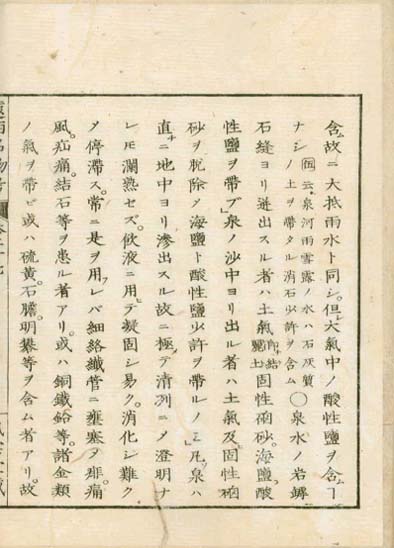 含ム故ニ大抵雨水ト同シ。但大氣中ノ酸性鹽ヲ含ムヿ
ナシノ土ヲ帶タル消石少許ヲ含ム〇泉水ノ岩罅
石縫ヨリ迸出スル者ハ土氣固性硇砂。海鹽。酸
性鹽ヲ帶ブ」泉ノ沙中ヨリ出ル者ハ土氣及ビ固性硇
砂ヲ脱除メ海鹽ト酸性鹽少許ヲ帶ルノミ」凡泉ハ
直ニ地中ヨリ滲出スル故ニ極テ清冽ニメ澄明ナ
レ𪜈瀾熟セズ。飮液ニ用テ凝固シ易ク。消化シ難ク
メ停滯ス。常ニ是ヲ用レバ細絡纎管ニ壅塞ヲ
風。疝痛。結石等ヲ患ル者アリ。或ハ銅鐵鉛等。諸金類
ノ氣ヲ帶ビ或ハ硫黃。石膽。明礬等ヲ含ム者アリ。故